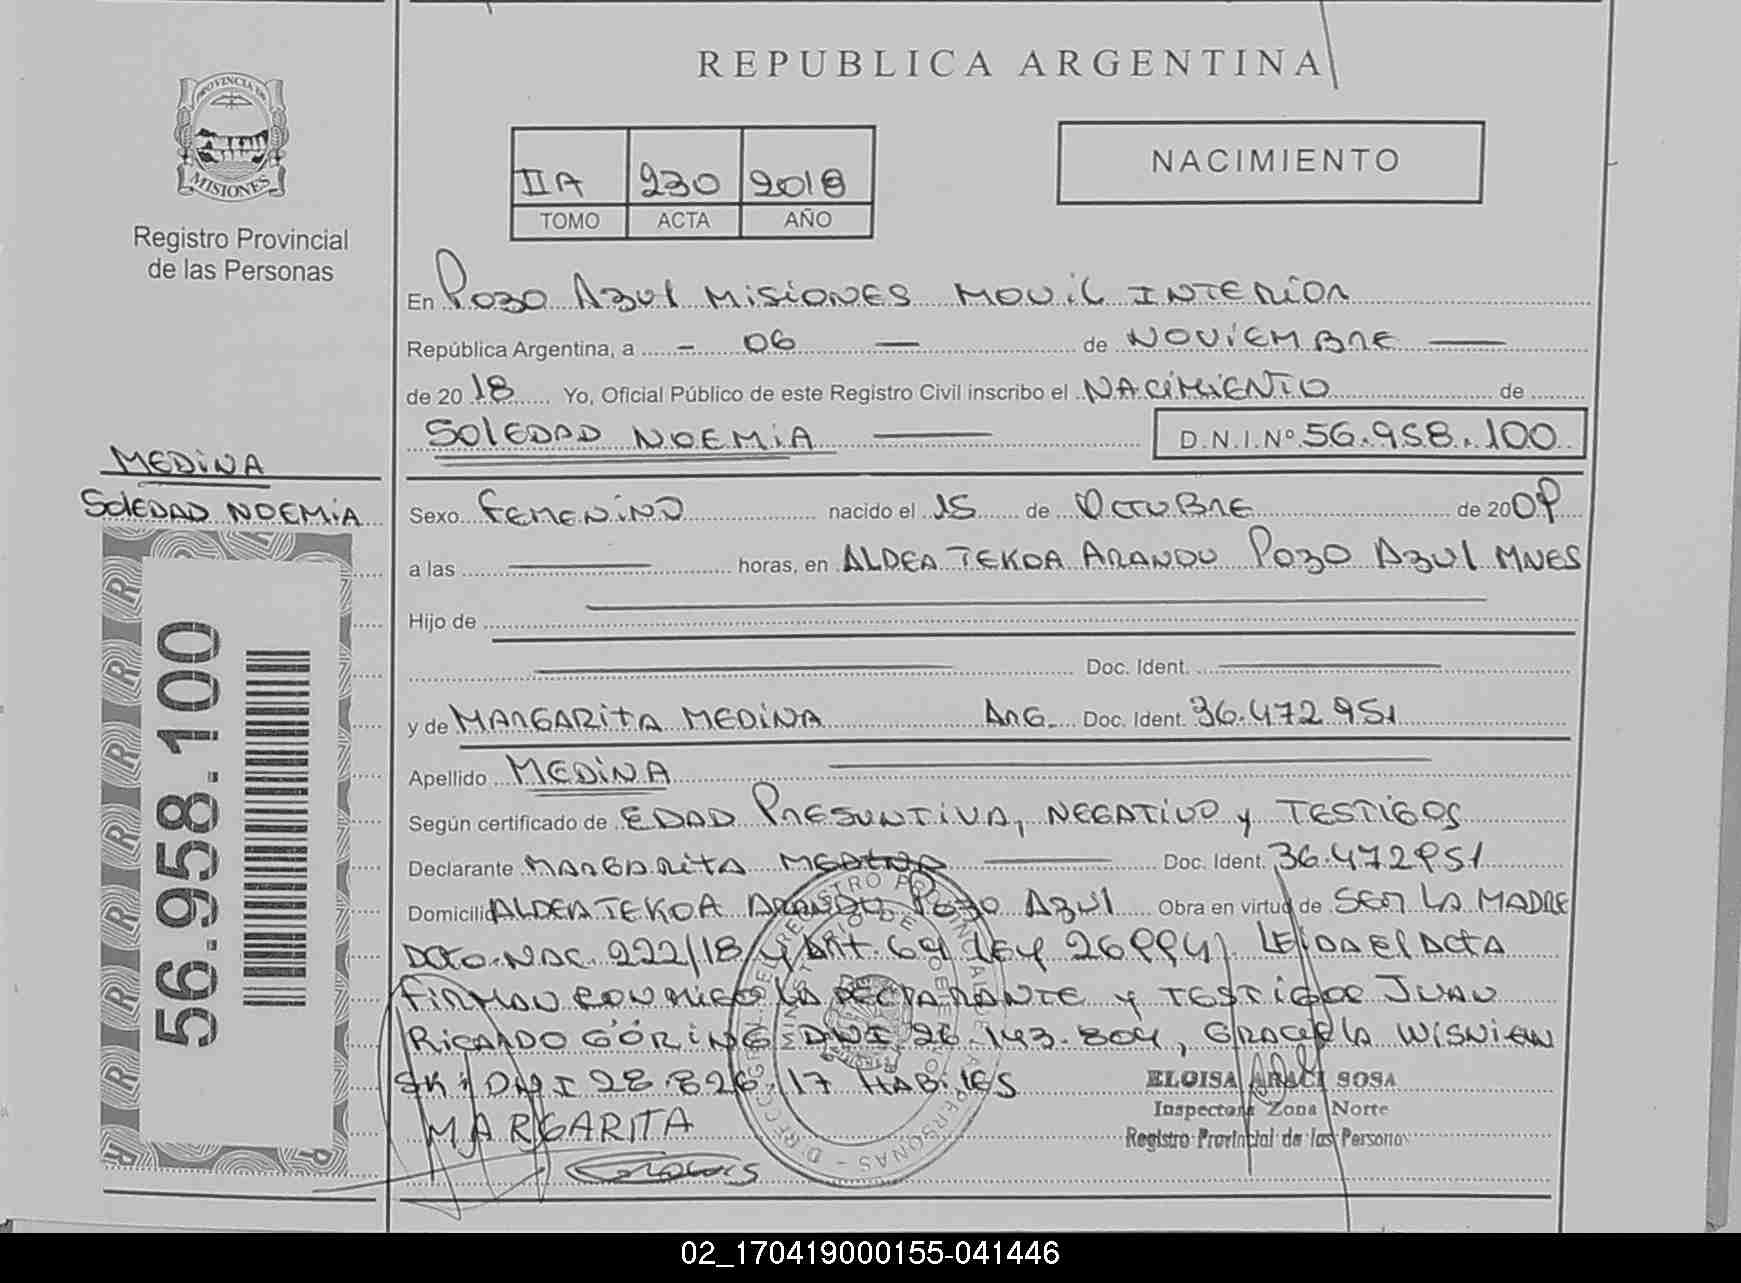 REPUBLICA ARGENTINA
PROVINCIA DE
MISIONES
Registro Provincial
de las Personas
IIA 230 2018
TOMO ACTA AÑO
NACIMIENTO
En Pozo Azul Misiones Movil Interior
República Argentina, a - 06 — de Noviembre —
de 20 18 Yo, Oficial Público de este Registro Civil inscribo el Nacimiento de
Soledad Noemia — D.N.I.Nº 56.958.100
Medina
Soledad Noemia
56.958.100
Sexo Femenino nacido el 15 de Octubre de 20 09
a las — horas, en Aldea Tekoa Arandu Pozo Azul Mnes
Hijo de
Doc. Ident.
y de Margarita Medina Arg. Doc. Ident. 36.472.951
Apellido Medina
Según certificado de Edad Presuntiva, Negativo y Testigos
Declarante Margarita Medina — Doc. Ident. 36.472951
Domicilio Aldea Tekoa Arandu Pozo Azul Obra en virtud de Ser la Madre
Dcto. Nac. 222/18 y Art. 69 Ley 26994). Leida el Acta
Firman conmigo la Declarante y Testigos Juan
Ricardo Göring DNI 26.143.804, Graciela Wisniew
ski DNI 28.826.17 Habiles
MARGARITA
ELOISA ARACI SOSA
Inspectora Zona Norte
Registro Provincial de las Personas
02_170419000155-041446